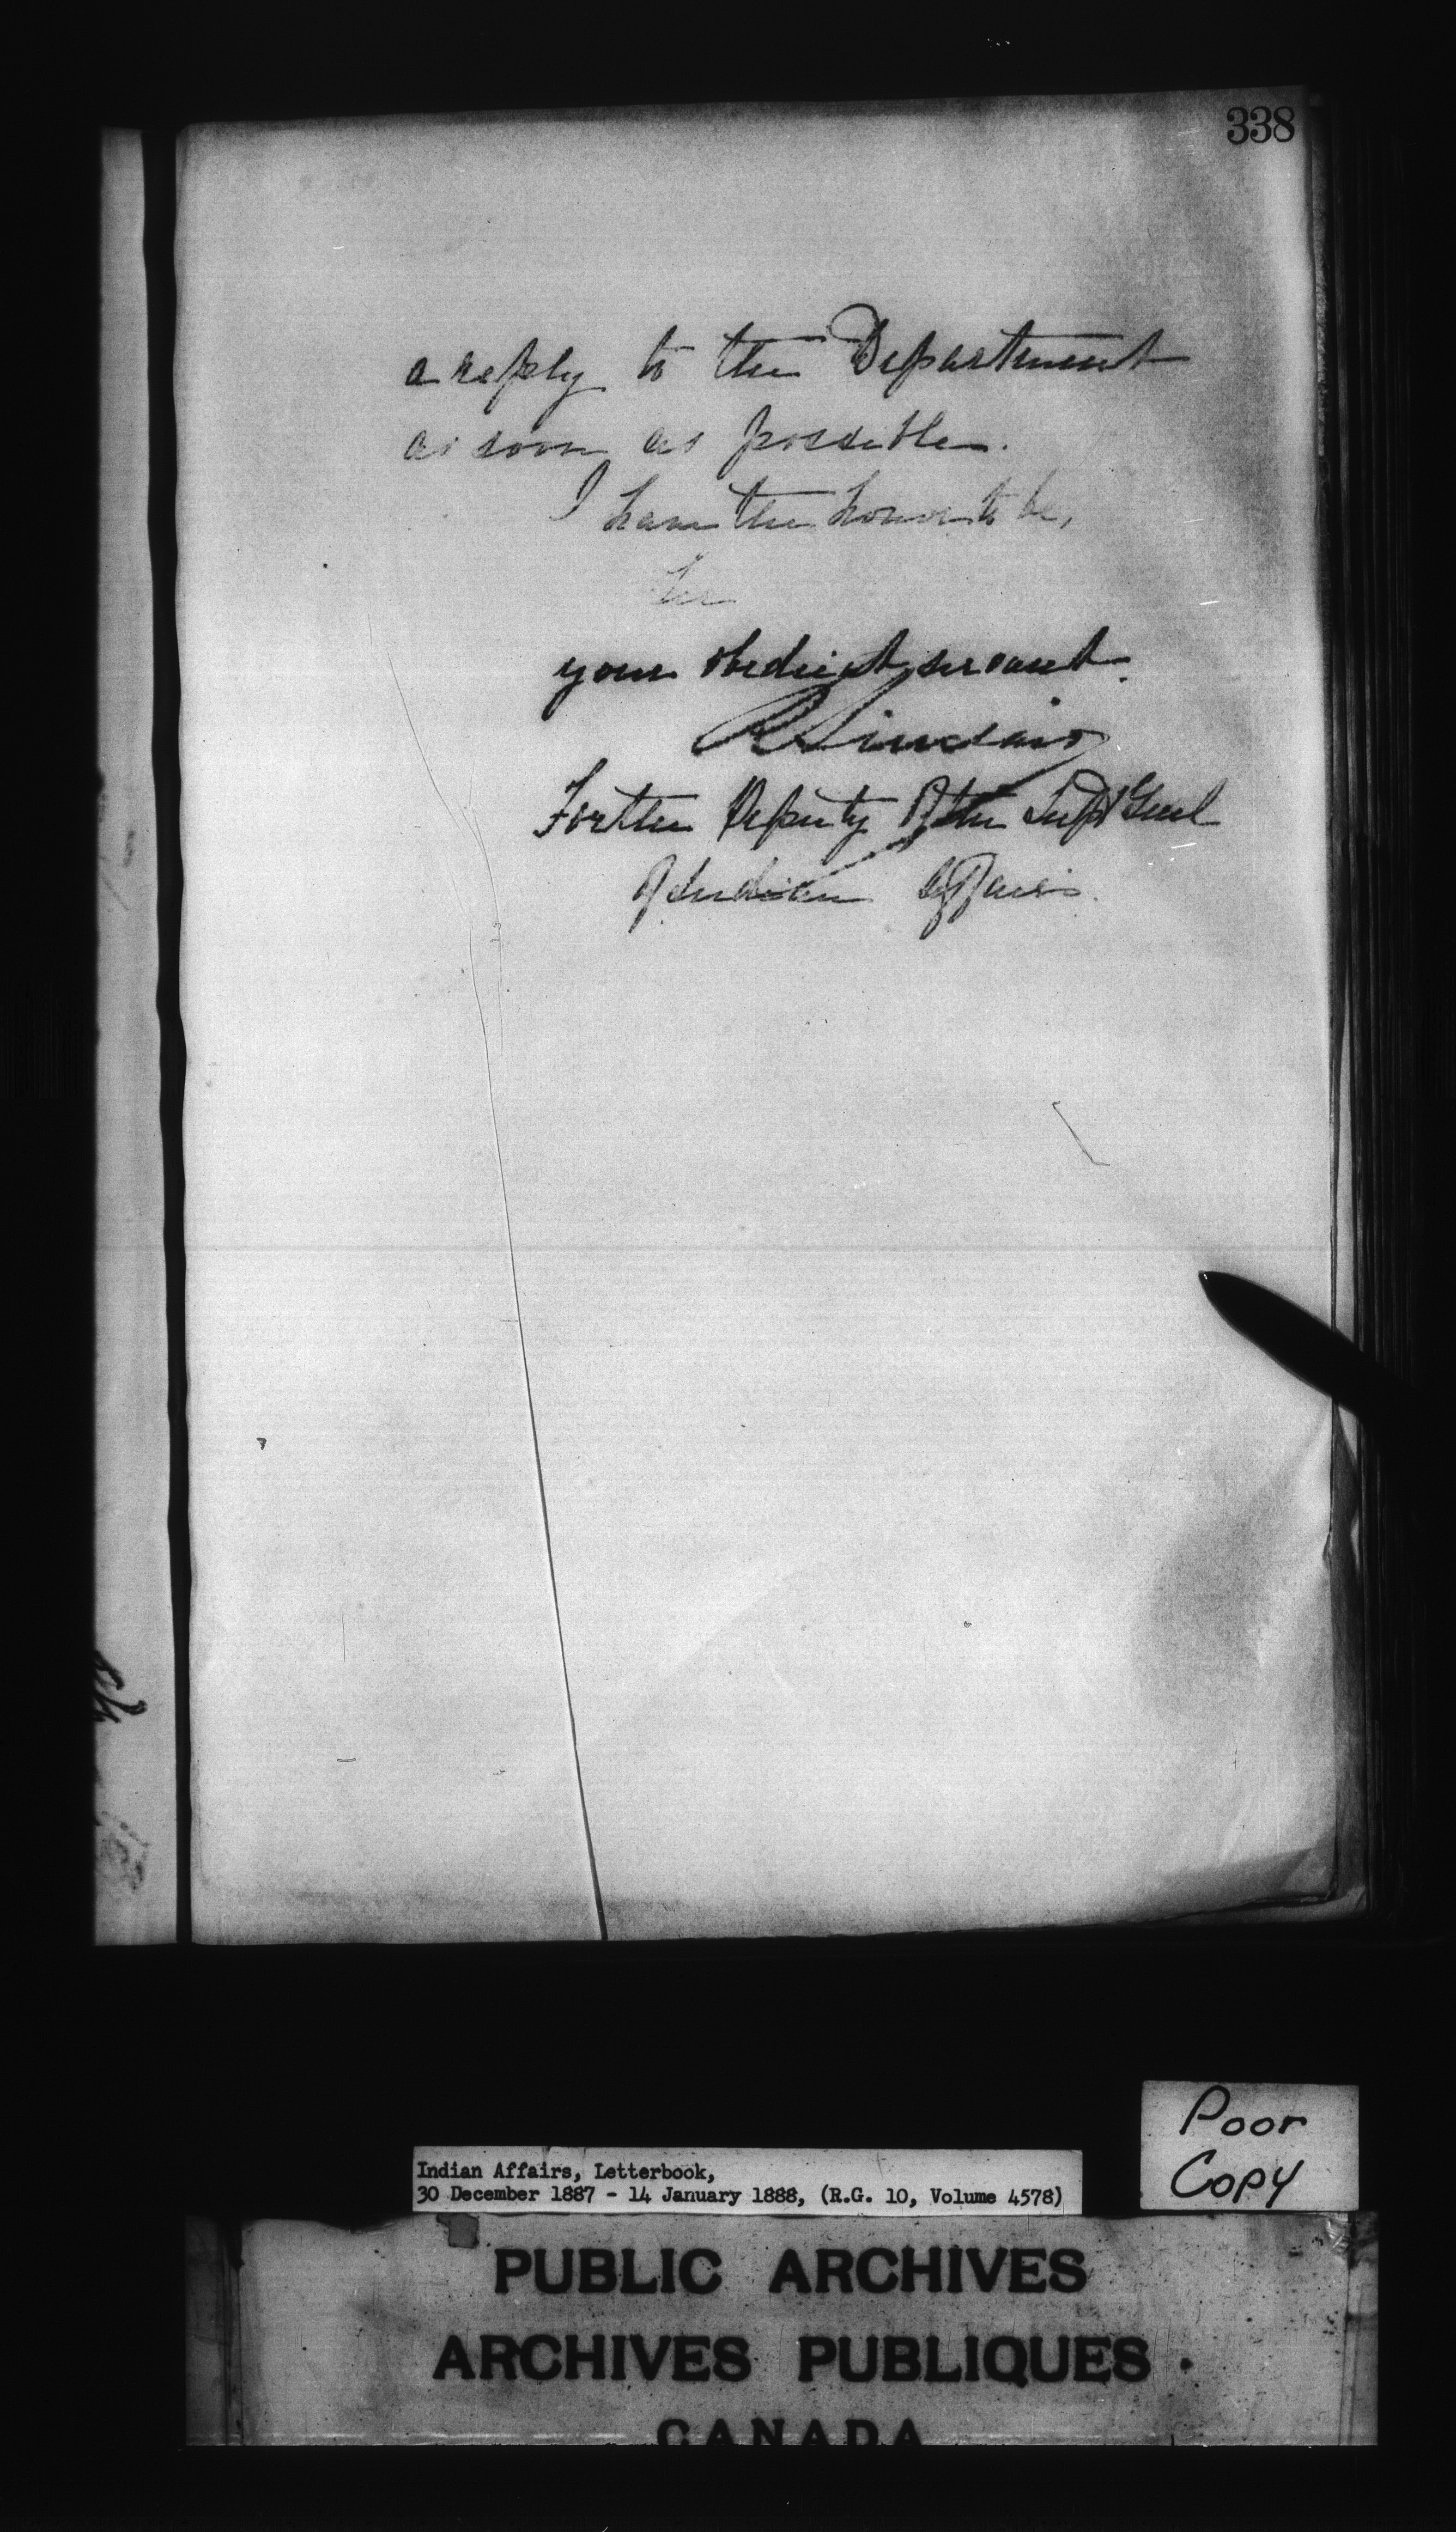 338
a reply to the Department
as soon as possible.
I have the honor to be,
Sir
your obedient servant.
R Sinclair
For the Deputy of the Supt Genl
of Indian Affairs.
Poor
Copy
Indian Affairs, Letterbook,
30 December 1887 - 14 January 1888, (R.G. 10, Volume 4578)
PUBLIC ARCHIVES
ARCHIVES PUBLIQUES
CANADA